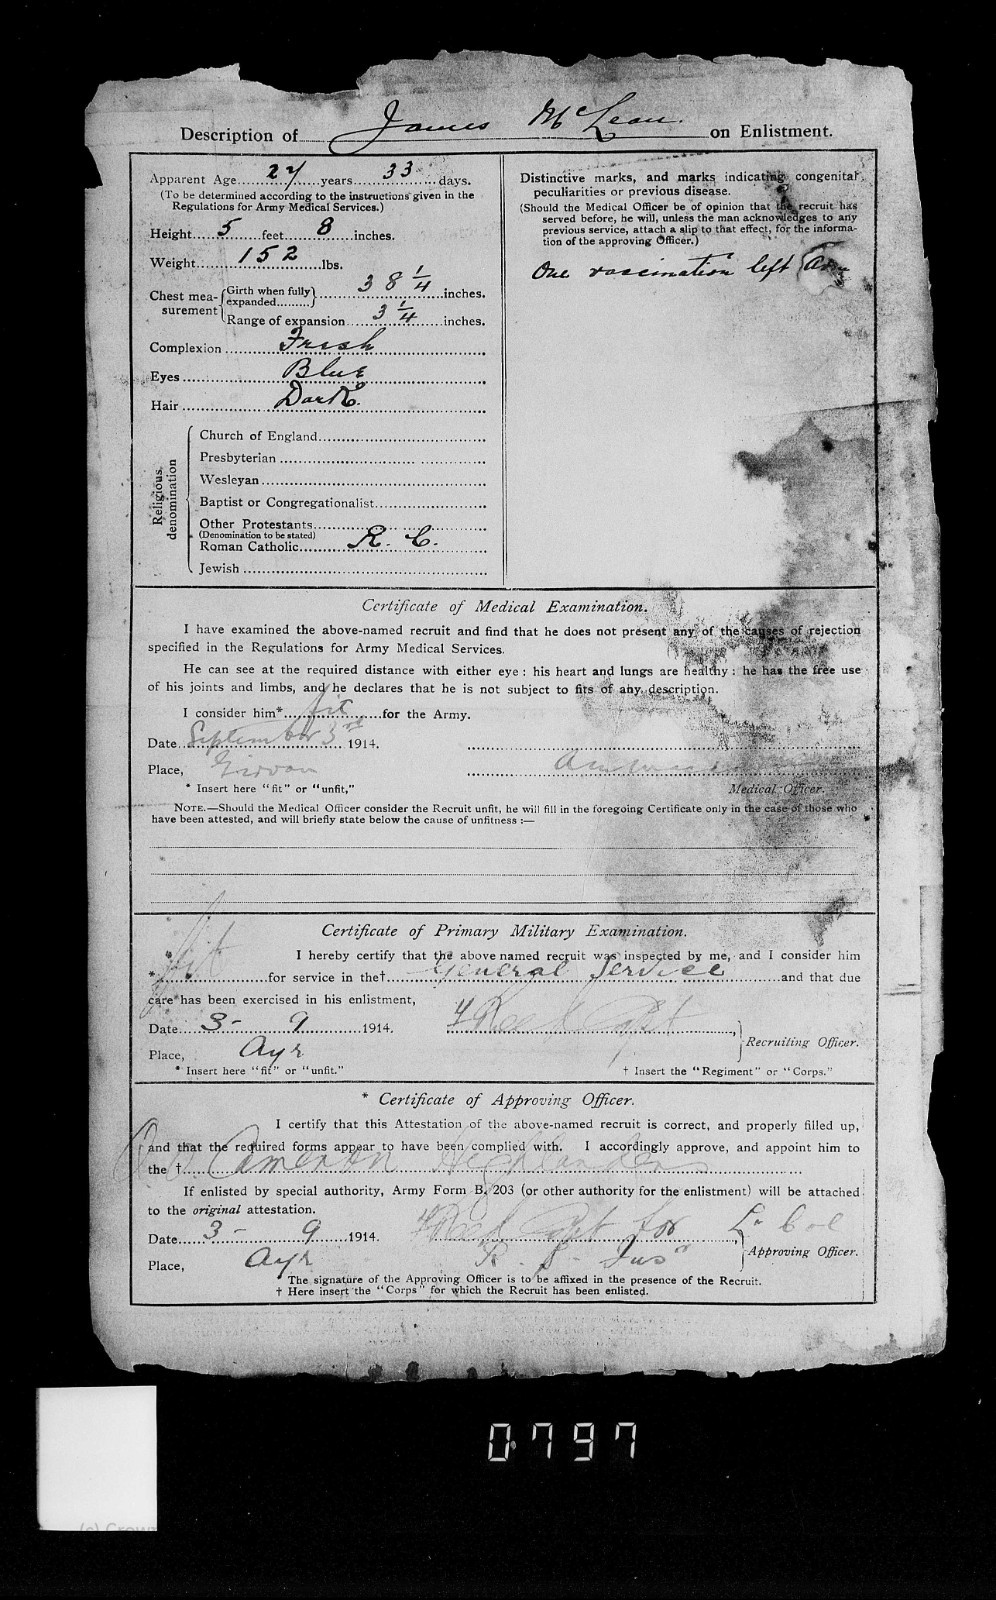 Description of James McLean. on Enlistment.
Apparent Age 27 years 33 days.
(To be determined according to the instructions given in the
Regulations for Army Medical Services.)
Height 5 feet 8 inches.
Weight 152 lbs.
Chest mea-surement { Girth when fully expanded } 38 1/4 inches.
Range of expansion 3 1/4 inches.
Complexion Fresh
Eyes Blue
Hair Dark.
Religious denomination
Church of England
Presbyterian
Wesleyan
Baptist or Congregationalist
Other Protestants
(Denomination to be stated)
Roman Catholic R. C.
Jewish
Distinctive marks, and marks indicating congenital
peculiarities or previous disease.
(Should the Medical Officer be of opinion that the recruit has
served before, he will, unless the man acknowledges to any
previous service, attach a slip to that effect, for the informa-
tion of the approving Officer.)
One vaccination left Arm
Certificate of Medical Examination.
I have examined the above-named recruit and find that he does not present any of the causes of rejection
specified in the Regulations for Army Medical Services.
He can see at the required distance with either eye: his heart and lungs are healthy: he has the free use
of his joints and limbs, and he declares that he is not subject to fits of any description.
I consider him* fit for the Army.
Date September 3rd 1914.
Place, Girvan
* Insert here "fit" or "unfit,"
Medical Officer.
NOTE.—Should the Medical Officer consider the Recruit unfit, he will fill in the foregoing Certificate only in the case of those who
have been attested, and will briefly state below the cause of unfitness :—
Certificate of Primary Military Examination.
I hereby certify that the above named recruit was inspected by me, and I consider him
* fit for service in the† General Service and that due
care has been exercised in his enlistment,
Date 3 - 9 1914.
Place, Ayr
Recruiting Officer.
* Insert here "fit" or "unfit."
† Insert the "Regiment" or "Corps."
* Certificate of Approving Officer.
I certify that this Attestation of the above-named recruit is correct, and properly filled up,
and that the required forms appear to have been complied with. I accordingly approve, and appoint him to
the † Cameron Highlanders
If enlisted by special authority, Army Form B. 203 (or other authority for the enlistment) will be attached
to the original attestation.
Date 3 - 9 1914. Capt for Lt Col
Place, Ayr R. S. Fus
Approving Officer.
The signature of the Approving Officer is to be affixed in the presence of the Recruit.
† Here insert the "Corps" for which the Recruit has been enlisted.
0797